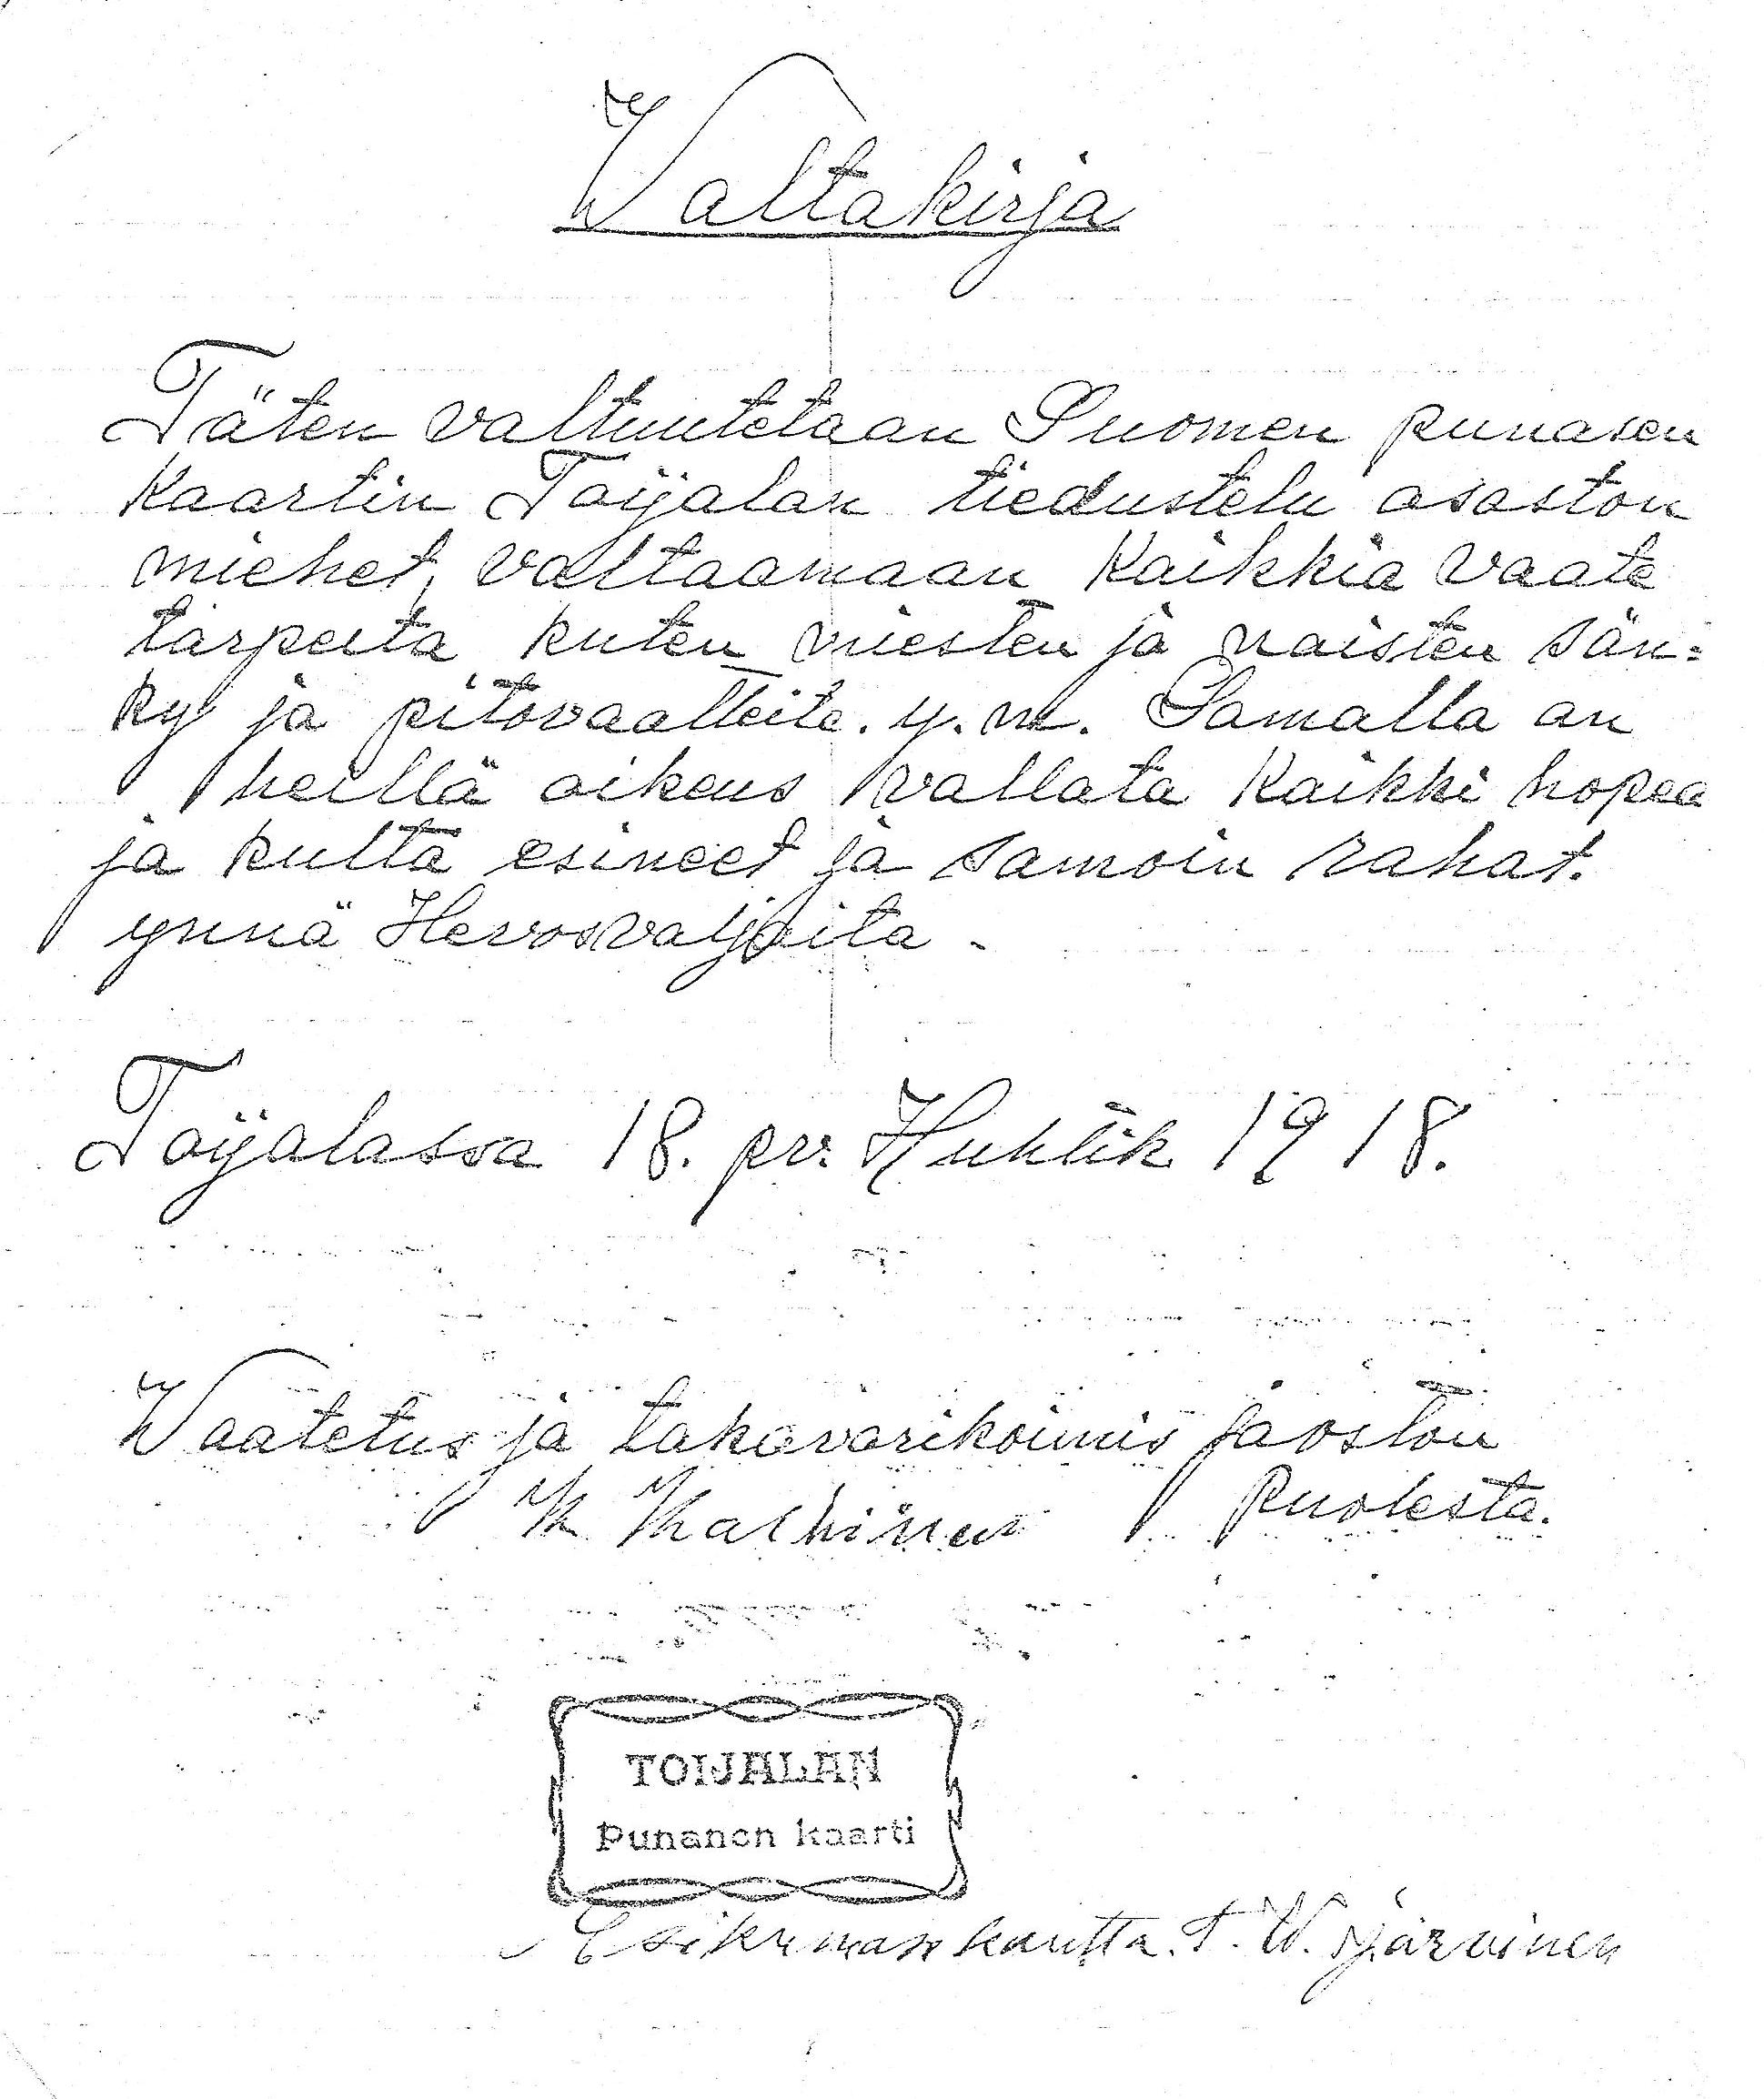 Valtakirja
Täten valtuutetaan Suomen punasen
Kaartin Toijalan tiedustelu osaston
miehet, valtaamaan Kaikkia vaate
tarpeita kuten miesten ja naisten sän=
ky ja pitovaatteita. y.m. Samalla on
heillä oikeus vallata Kaikki hopea
ja kulta esineet ja samoin rahat.
ynnä Hevosvaljaita.
Toijalassa 18. pv: Huhtik 1918.
Vaatetus ja takavarikoimis jaoston
puolesta.
K
TOIJALAN
Punanen kaarti
Esikunnan kautta. T. W. Järvinen